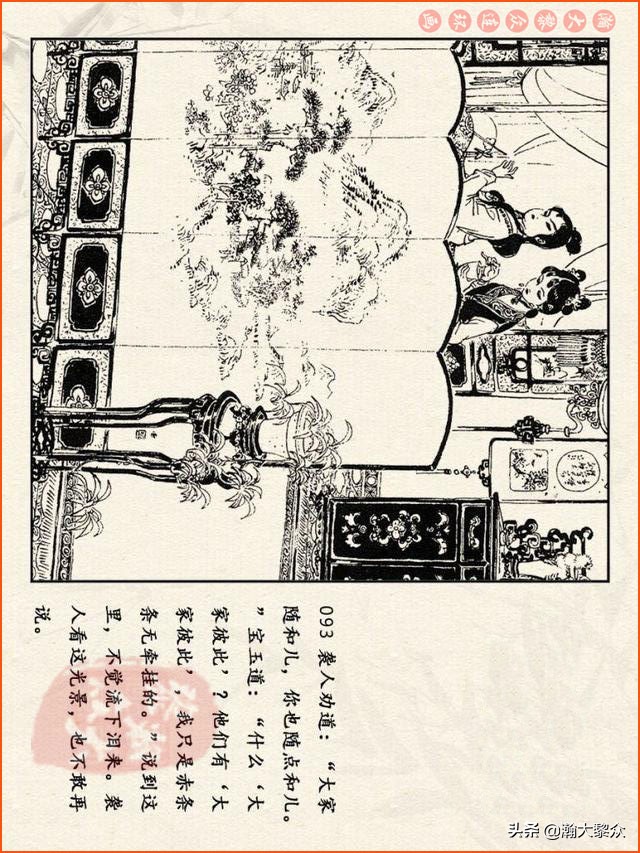 瀚大黎众连环画
093 袭人劝道：“大家
随和儿，你也随点和儿。
”宝玉道：“什么‘大
家彼此’？他们有‘大
家彼此’，我只是赤条
条无牵挂的。”说到这
里，不觉流下泪来。袭
人看这光景，也不敢再
说。
头条 @瀚大黎众